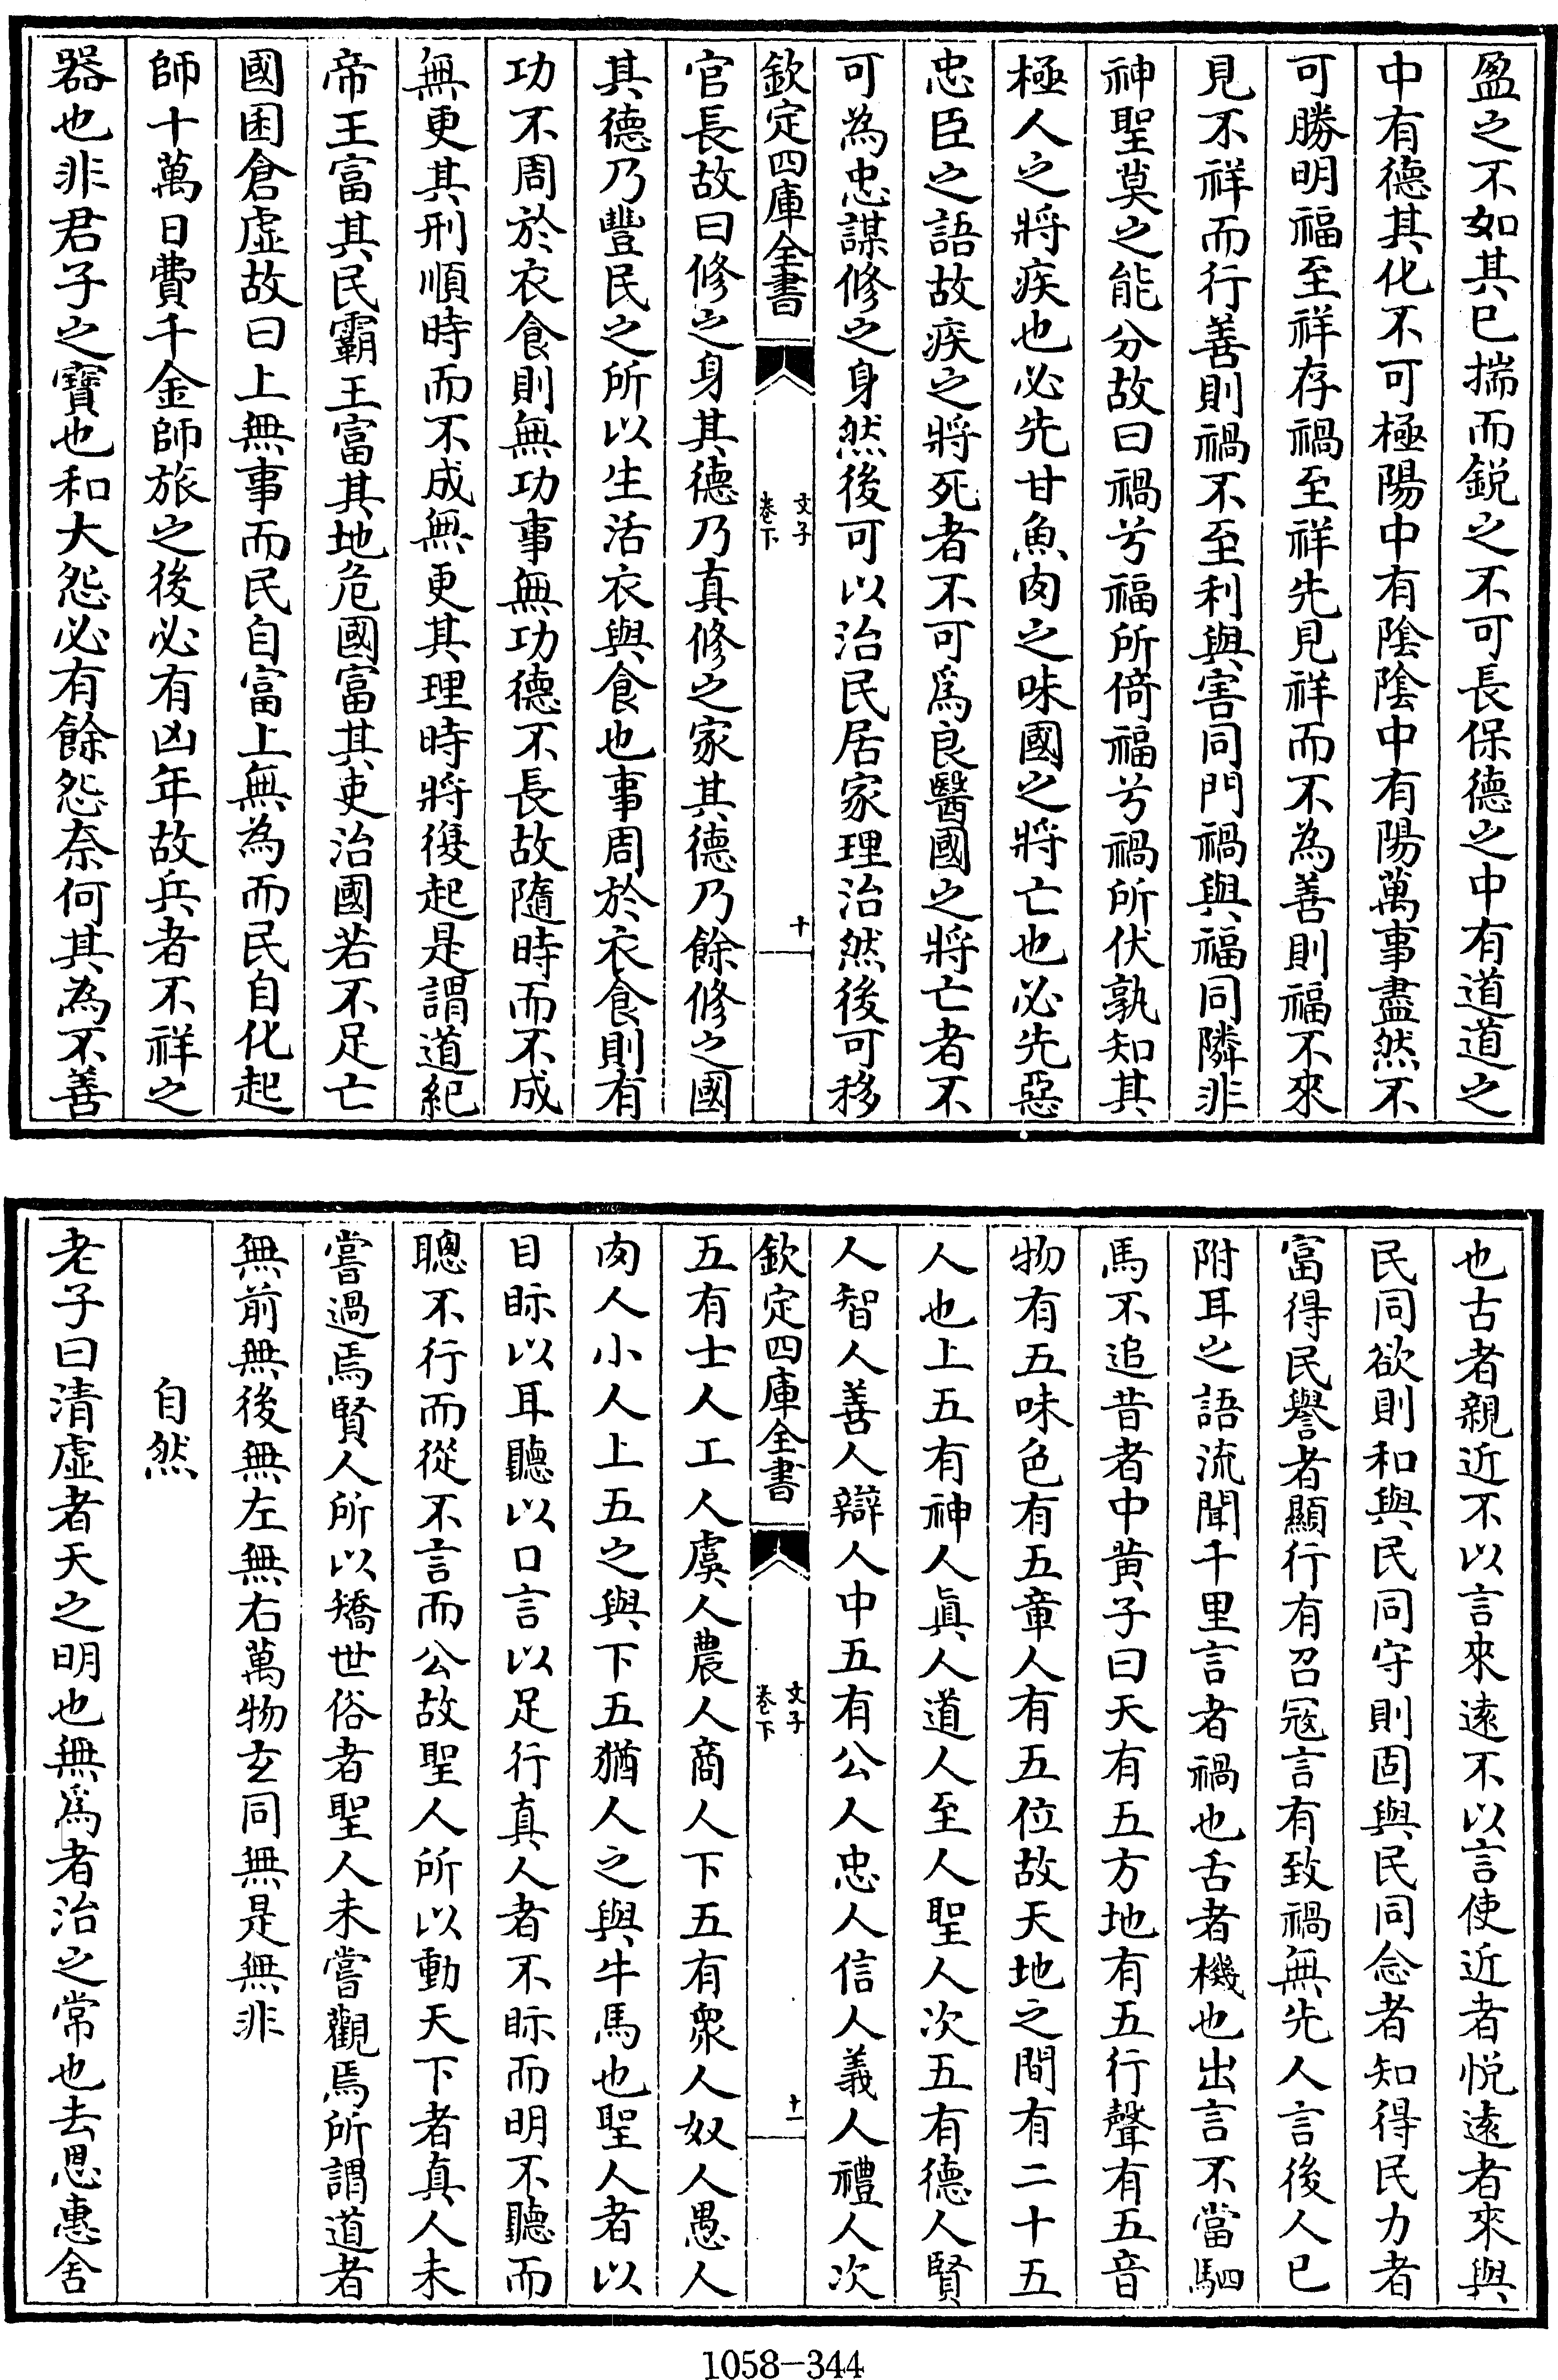 盈之不如其已揣而銳之不可長保德之中有道道之
中有德其化不可極陽中有隂隂中有陽萬事盡然不
可勝明福至祥存禍至祥先見祥而不為善則福不來
見不祥而行善則禍不至利與害同門禍與福同隣非
神聖莫之能分故曰禍兮福所倚福兮禍所伏孰知其
極人之將疾也必先甘魚肉之味國之將亡也必先惡
忠臣之語故疾之將死者不可爲良醫國之將亡者不
可為忠謀修之身然後可以治民居家理治然後可移
欽定四庫全書
文子
卷下
十
官長故曰修之身其德乃真修之家其德乃餘修之國
其德乃豐民之所以生活衣與食也事周於衣食則有
功不周於衣食則無功事無功德不長故隨時而不成
無更其刑順時而不成無更其理時將復起是謂道紀
帝王富其民霸王富其地危國富其吏治國若不足亡
國困倉虛故曰上無事而民自富上無為而民自化起
師十萬日費千金師旅之後必有凶年故兵者不祥之
器也非君子之寶也和大怨必有餘怨奈何其為不善
也古者親近不以言來逺不以言使近者悅逺者來與
民同欲則和與民同守則固與民同念者知得民力者
富得民譽者顯行有召寇言有致禍無先人言後人已
附耳之語流聞千里言者禍也舌者機也出言不當駟
馬不追昔者中黄子曰天有五方地有五行聲有五音
物有五味色有五章人有五位故天地之間有二十五
人也上五有神人眞人道人至人聖人次五有德人賢
人智人善人辯人中五有公人忠人信人義人禮人次
欽定四庫全書
文子
卷下
十一
五有士人工人虞人農人商人下五有衆人奴人愚人
肉人小人上五之與下五猶人之與牛馬也聖人者以
目眎以耳聽以口言以足行真人者不眎而明不聽而
聰不行而從不言而公故聖人所以動天下者真人未
嘗過焉賢人所以矯世俗者聖人未嘗觀焉所謂道者
無前無後無左無右萬物玄同無是無非
自然
老子曰清虛者天之明也無爲者治之常也去思惠舍
1058-344